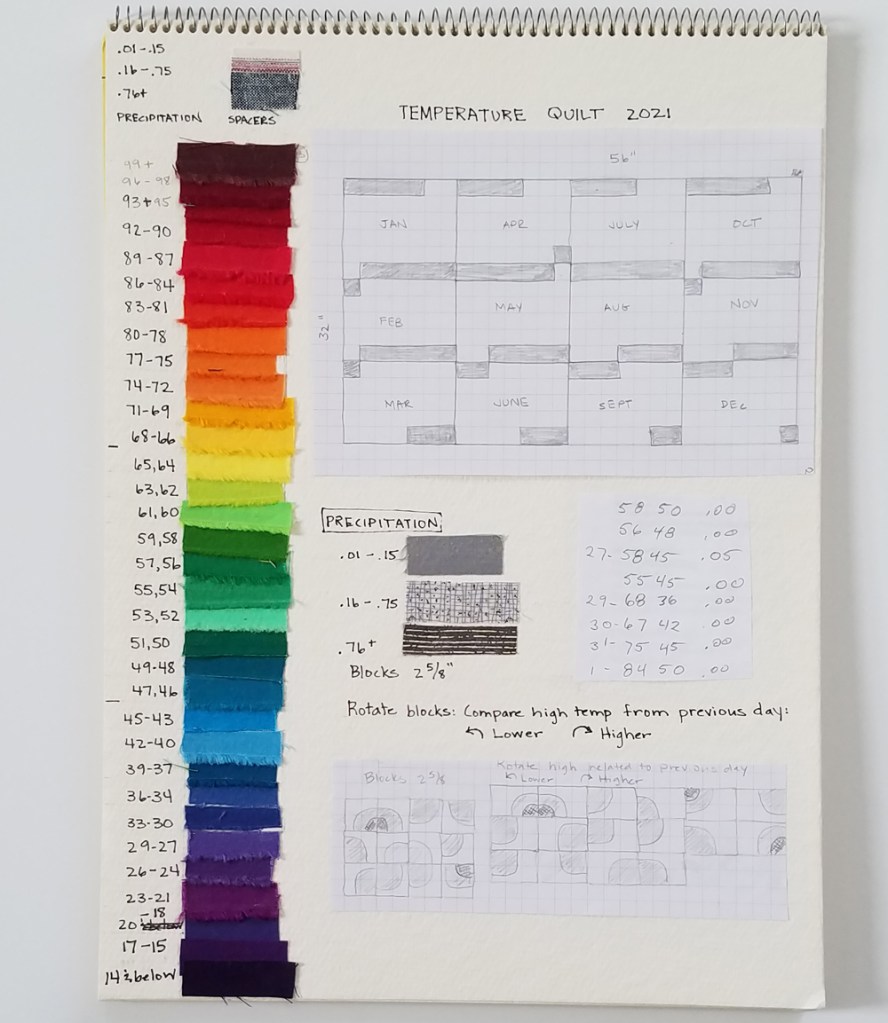 .01-.15
.16-.75
.76+
PRECIPITATION SPACERS
99+
96-98
93+95
92-90
89-87
86-84
83-81
80-78
77-75
74-72
71-69
68-66
65,64
63,62
61,60
59,58
57,56
55,54
53,52
51,50
49-48
47,46
45-43
42-40
39-37
36-34
33-30
29-27
26-24
23-21
-18
20
17-15
14 & below
TEMPERATURE QUILT 2021
56"
32"
JAN APR JULY OCT
FEB MAY AUG NOV
MAR JUNE SEPT DEC
PRECIPITATION
.01-.15
.16-.75
.76+
Blocks 2 5/8"
58 50 .00
56 48 .00
27- 58 45 .05
55 45 .00
29- 68 36 .00
30- 67 42 .00
31- 75 45 .00
1- 84 50 .00
Rotate blocks: Compare high temp from previous day:
↰ Lower ↷ Higher
Blocks 2 5/8
Rotate high related to previous day
↰ Lower ↷ Higher